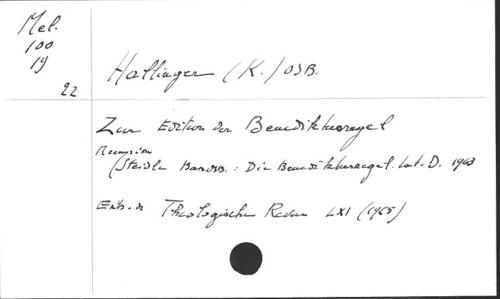 Mel.
100
19
22
Hallinger (K.) OSB.
Zur Edition der Benediktusregel
Recension
(Steidle B. OSB. : Die Benediktusregel. Lat. D. 1963
Extr. de Theologische Revue LXI (1965)